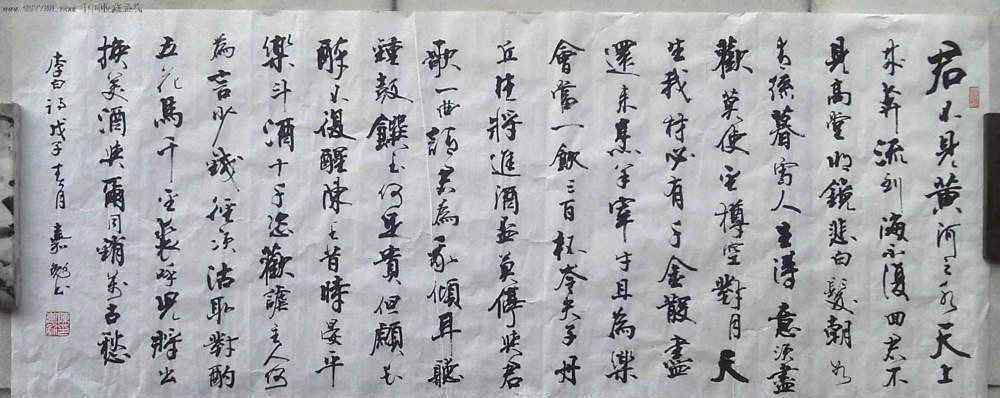 君不見黃河之水天上
來奔流到海不復回君不
見高堂明鏡悲白髮朝如
青絲暮雪人生得意須盡
歡莫使金樽空對月天
生我材必有千金散盡
還來烹羊宰牛且為樂
會當一飲三百杯岑夫子丹
丘生將進酒杯莫停與君
歌一曲請君為我傾耳聽
鐘鼓饌玉何足貴但願長
醉不復醒陳王昔時宴平
樂斗酒十千恣歡謔主人何
為言少錢徑須沽取對酌
五花馬千金裘呼兒將出
換美酒與爾同銷萬古愁
李白詩戊子年月